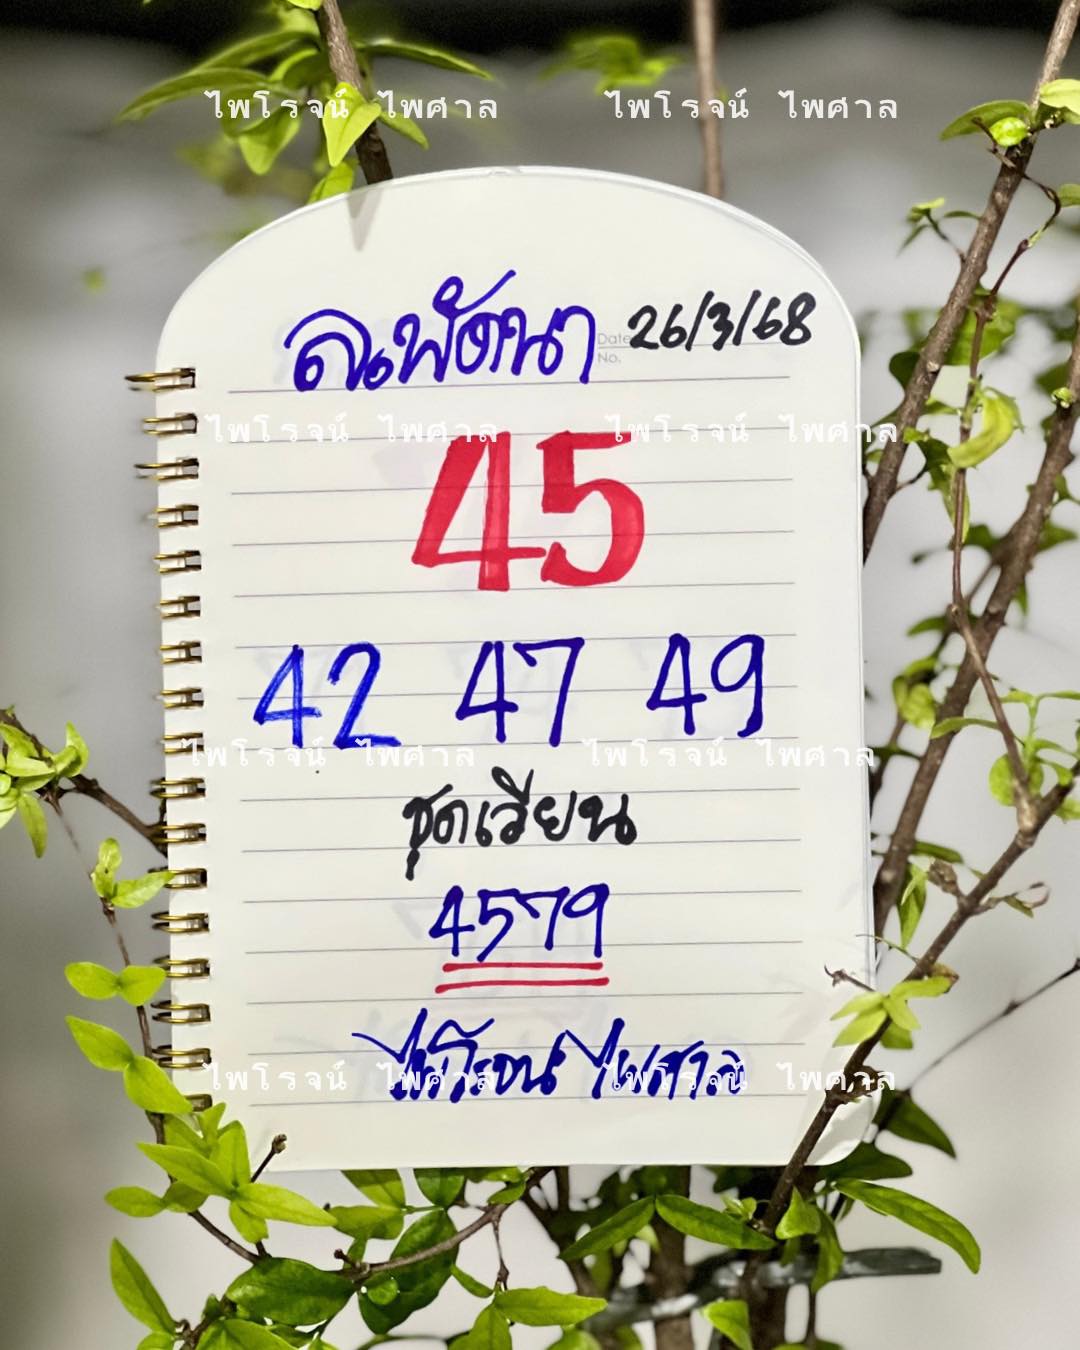 ไพโรจน์ ไพศาล ไพโรจน์ ไพศาล
ลาวพัฒนา 26/3/68
Date
No.
ไพโรจน์ ไพศาล ไพโรจน์ ไพศาล
45
42 47 49
ไพโรจน์ ไพศาล ไพโรจน์ ไพศาล
ชุดเวียน
4579
ไพโรจน์ ไพศาล
ไพโรจน์ ไพศาล ไพโรจน์ ไพศาล